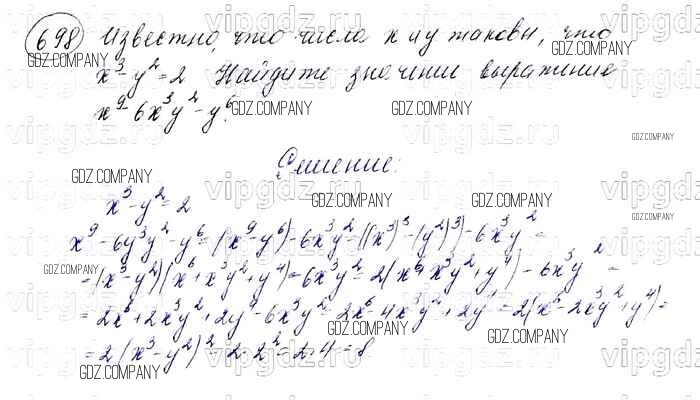 698 Известно, что числа x и y таковы, что
x³-y²=2 Найдите значение выражение
x⁹-6x³y²-y⁶.
Решение:
x³-y²=2
x⁹-6y³y²-y⁶=(x⁹-y⁶)-6x³y²=((x³)³-(y²)³)-6x³y²=
=(x³-y²)(x⁶+x³y²+y⁴)=6x³y²=2(x⁶+x³y²+y⁴)-6x³y²=
=2x⁶+2x³y²+2y⁴-6x³y²=2x⁶-4x³y²+2y⁴=2(x⁶-2x³y²+y⁴)=
=2(x³-y²)²=2·2²=2·4=8
GDZ.COMPANY
vipgdz.ru